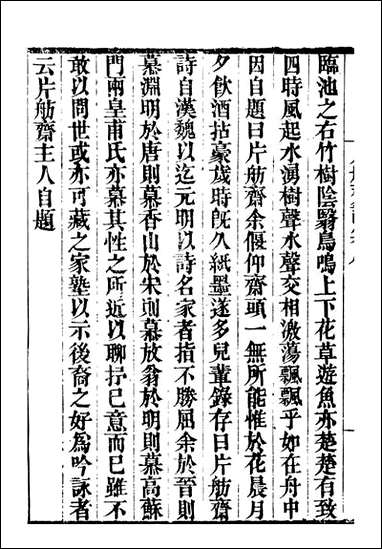 臨池之右竹樹陰翳鳥鳴上下花草遊魚亦楚楚有致
四時風起水湧樹聲水聲交相激蕩飄飄乎如在舟中
因自題曰片舫齋余偃仰齋頭一無所能惟於花晨月
夕飲酒拈豪歲時旣久紙墨遂多兒輩錄存曰片舫齋
詩自漢魏以迄元明以詩名家者指不勝屈余於晉則
慕淵明於唐則慕香山於宋則慕放翁於明則慕高蘇
門兩皇甫氏亦慕其性之所近以聊抒已意而已雖不
敢以問世或亦可藏之家塾以示後裔之好爲吟詠者
云片舫齋主人自題